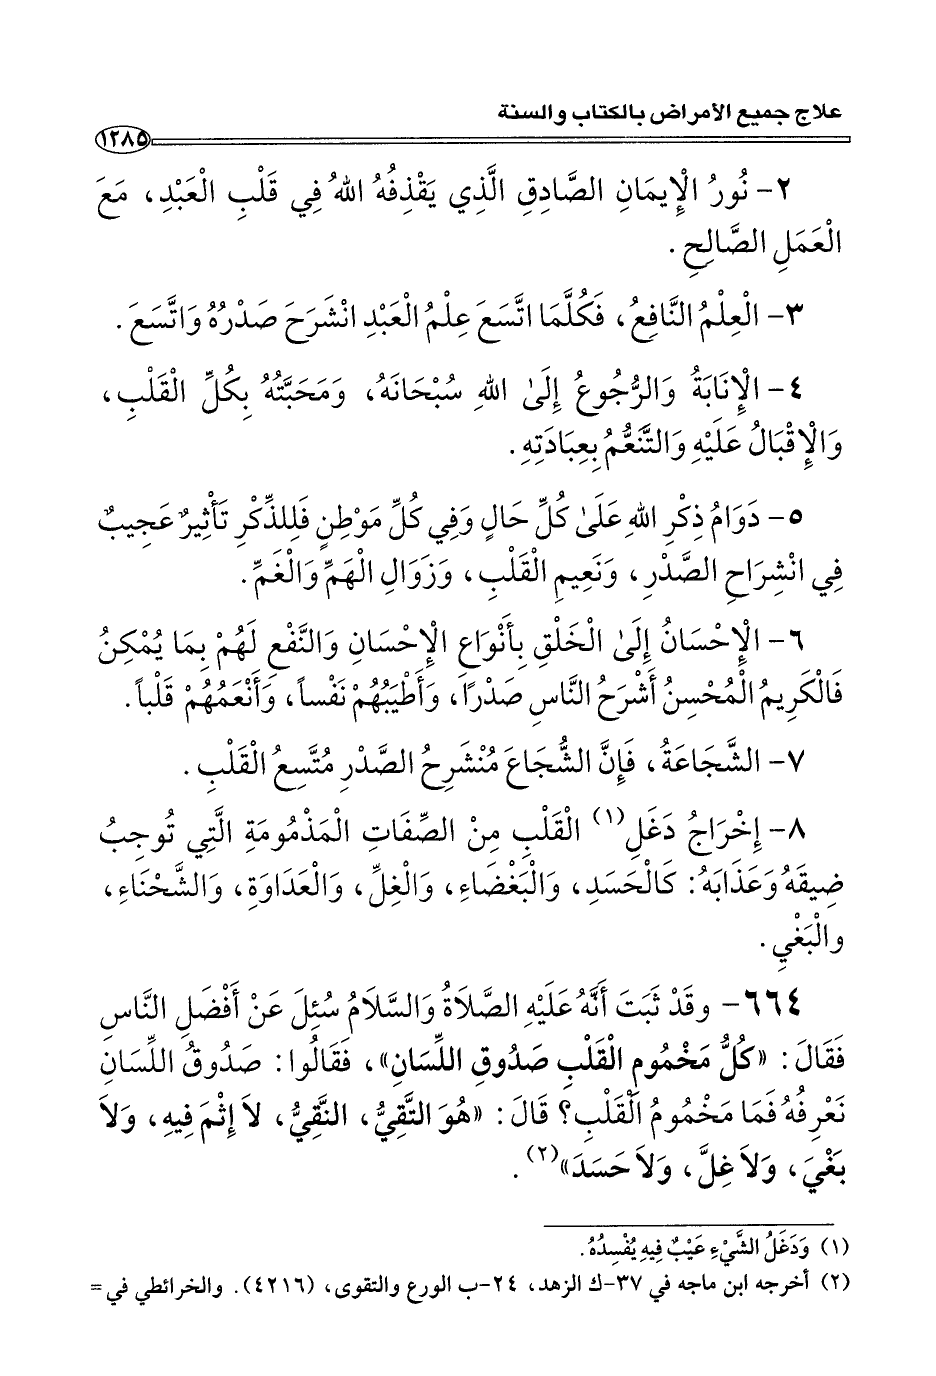 علاج جميع الأمراض بالكتاب والسنة
١٢٨٥
٢- نُورُ الْإِيمَانِ الصَّادِقِ الَّذِي يَقْذِفُهُ اللهُ فِي قَلْبِ الْعَبْدِ، مَعَ
الْعَمَلِ الصَّالِحِ.
٣- الْعِلْمُ النَّافِعُ، فَكُلَّمَا اتَّسَعَ عِلْمُ الْعَبْدِ انْشَرَحَ صَدْرُهُ وَاتَّسَعَ.
٤- الْإِنَابَةُ وَالرُّجُوعُ إِلَىٰ اللهِ سُبْحَانَهُ، وَمَحَبَّتُهُ بِكُلِّ الْقَلْبِ،
وَالْإِقْبَالُ عَلَيْهِ وَالتَّنَعُّمُ بِعِبَادَتِهِ.
٥- دَوَامُ ذِكْرِ اللهِ عَلَىٰ كُلِّ حَالٍ وَفِي كُلِّ مَوْطِنٍ فَلِلذِّكْرِ تَأْثِيرٌ عَجِيبٌ
فِي انْشِرَاحِ الصَّدْرِ، وَنَعِيمِ الْقَلْبِ، وَزَوَالِ الْهَمِّ وَالْغَمِّ.
٦- الْإِحْسَانُ إِلَىٰ الْخَلْقِ بِأَنْوَاعِ الْإِحْسَانِ وَالنَّفْعِ لَهُمْ بِمَا يُمْكِنُ
فَالْكَرِيمُ الْمُحْسِنُ أَشْرَحُ النَّاسِ صَدْرًا، وَأَطْيَبُهُمْ نَفْساً، وَأَنْعَمُهُمْ قَلْباً.
٧- الشَّجَاعَةُ، فَإِنَّ الشُّجَاعَ مُنْشَرِحُ الصَّدْرِ مُتَّسِعُ الْقَلْبِ.
٨- إِخْرَاجُ دَغَلِ(١) الْقَلْبِ مِنَ الصِّفَاتِ الْمَذْمُومَةِ الَّتِي تُوجِبُ
ضِيقَهُ وَعَذَابَهُ: كَالْحَسَدِ، وَالْبَغْضَاءِ، وَالْغِلِّ، وَالْعَدَاوَةِ، وَالشَّحْنَاءِ،
والْبَغْيِ.
٦٦٤- وقَدْ ثَبَتَ أَنَّهُ عَلَيْهِ الصَّلَاةُ وَالسَّلَامُ سُئِلَ عَنْ أَفْضَلِ النَّاسِ
فَقَالَ: «كُلُّ مَخْمُومِ الْقَلْبِ صَدُوقِ اللِّسَانِ»، فَقَالُوا: صَدُوقُ اللِّسَانِ
نَعْرِفُهُ فَمَا مَخْمُومُ الْقَلْبِ؟ قَالَ: «هُوَ التَّقِيُّ، النَّقِيُّ، لاَ إِثْمَ فِيهِ، وَلاَ
بَغْيَ، وَلاَ غِلَّ، وَلاَ حَسَدَ»(٢).
(١) وَدَغَلُ الشَّيْءِ عَيْبٌ فِيهِ يُفْسِدُهُ.
(٢) أخرجه ابن ماجه في ٣٧-ك الزهد، ٢٤-ب الورع والتقوى، (٤٢١٦). والخرائطي في =